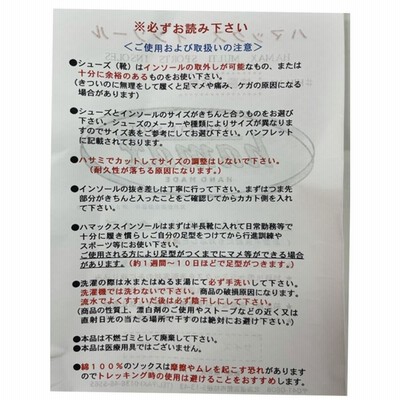 ※必ずお読み下さい
＜ご使用および取扱いの注意＞
●シューズ（靴）はインソールの取外しが可能なもの、または
十分に余裕のあるものをお使い下さい。
（きついのに無理をして履くと足マメや痛み、ケガの原因になる
場合があります）
●シューズとインソールのサイズがきちんと合うものをお選び
下さい。シューズのメーカーや種類によりサイズが異なりま
すのでサイズ表をご参考にしてお選び下さい。パンフレット
に記載されております。
●ハサミでカットしてサイズの調整はしないで下さい。
（耐久性が落ちる原因になります。）
●インソールの抜き差しは丁寧に行って下さい。まずはつま先
部分がきちんと入ったことをご確認してからカカト側を入れ
て下さい。
●ハマックスインソールはまずは半長靴に入れて日常勤務等で
十分に履き慣らしご自分の足型をつけてから行進訓練や
スポーツ等にお使い下さい。
ご使用される方により足型がつくまでにマメ等ができる場合
があります。（約１週間～１０日ほどで足型がつきます。）
●洗濯の際は水またはぬるま湯にて必ず手洗いして下さい。
洗濯機では洗わないで下さい。商品の破損原因になります。
流水でよくすすいだ後は必ず陰干しにして下さい。
（商品の性質上、漂白剤のご使用やストーブなどの近く又は
直射日光の当たる場所で干すのは絶対にお避け下さい。）
●本品は不燃ゴミとして廃棄して下さい。
●本品は医療用具ではございません。
●綿１００％のソックスは摩擦やムレを起こす恐れがあります
のでトレッキング時の使用は避けることをおすすめします。